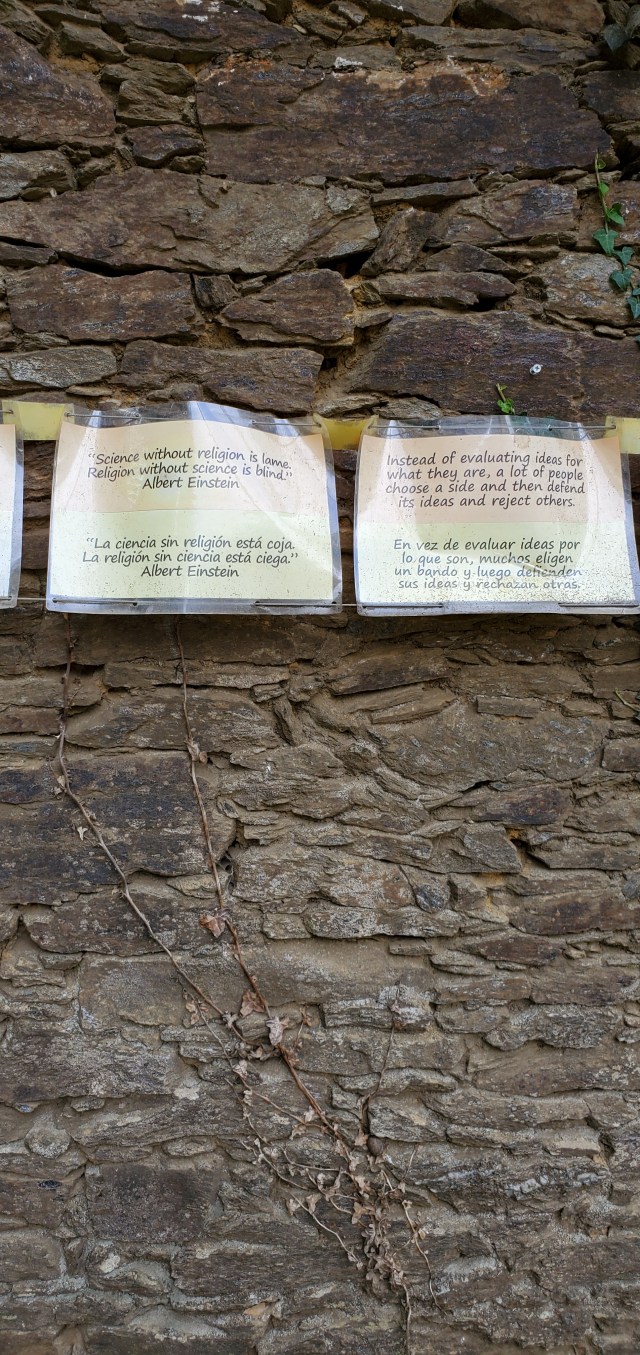 “Science without religion is lame.
Religion without science is blind.”
Albert Einstein
“La ciencia sin religión está coja.
La religión sin ciencia está ciega.”
Albert Einstein
Instead of evaluating ideas for
what they are, a lot of people
choose a side and then defend
its ideas and reject others.
En vez de evaluar ideas por
lo que son, muchos eligen
un bando y luego defienden
sus ideas y rechazan otras.